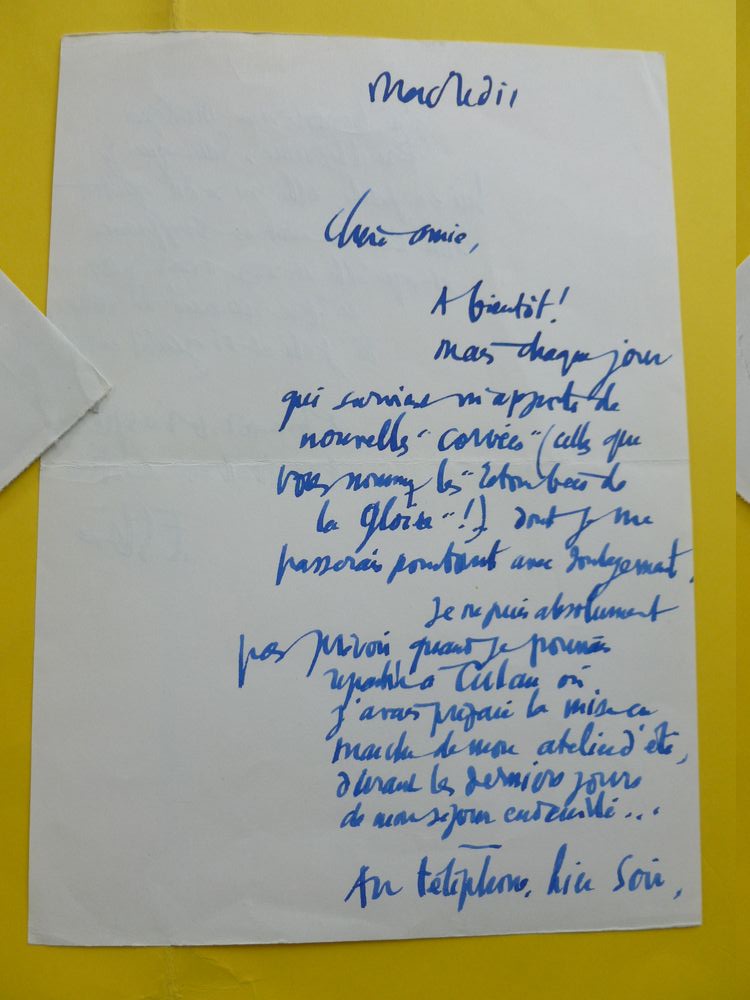 Mercredi
Chère amie,
A bientôt!
mais chaque jour
qui survient m'apporte de
nouvelles "corvées" (celles que
vous nommez les "retombées de
la gloire"!) dont je me
passerais pourtant avec soulagement.
Je ne puis absolument
pas prévoir quand je pourrais
repartir à Culan où
j'avais préparé la mise en
marche de mon atelier d'été,
durant les derniers jours
de mon séjour endeuillé...
Au téléphone, hier soir,